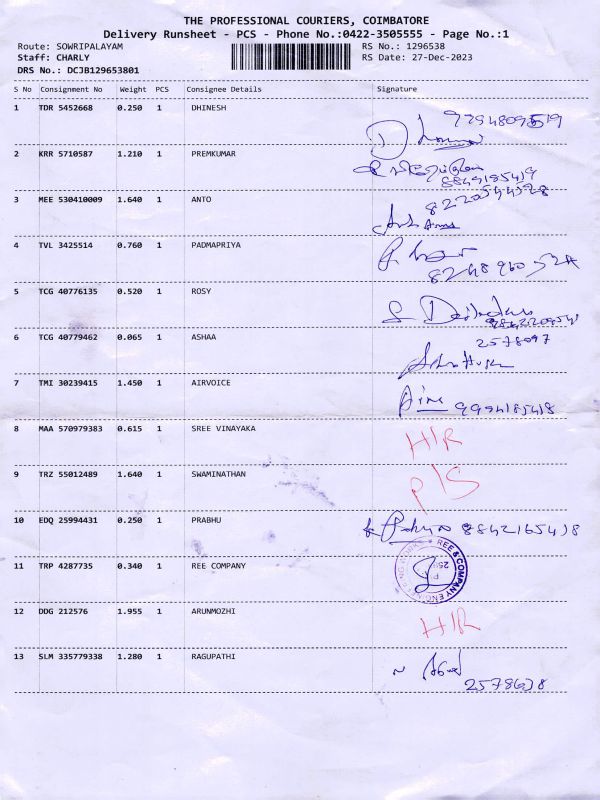 THE PROFESSIONAL COURIERS, COIMBATORE
Delivery Runsheet - PCS - Phone No.:0422-3505555 - Page No.:1
Route: SOWRIPALAYAM RS No.: 1296538
Staff: CHARLY RS Date: 27-Dec-2023
DRS No.: DCJB129653801
S No Consignment No Weight PCS Consignee Details Signature
1 TDR 5452668 0.250 1 DHINESH
2 KRR 5710587 1.210 1 PREMKUMAR
8849185419
3 MEE 530410009 1.640 1 ANTO
8220544328
4 TVL 3425514 0.760 1 PADMAPRIYA
5 TCG 40776135 0.520 1 ROSY
6 TCG 40779462 0.065 1 ASHAA
2578097
7 TMI 30239415 1.450 1 AIRVOICE
9994185418
8 MAA 570979383 0.615 1 SREE VINAYAKA H/R
9 TRZ 55012489 1.640 1 SWAMINATHAN P/S
10 EDQ 25994431 0.250 1 PRABHU 8842165438
11 TRP 4287735 0.340 1 REE COMPANY REE & COMPANY
12 DDG 212576 1.955 1 ARUNMOZHI H/R
13 SLM 335779338 1.280 1 RAGUPATHI